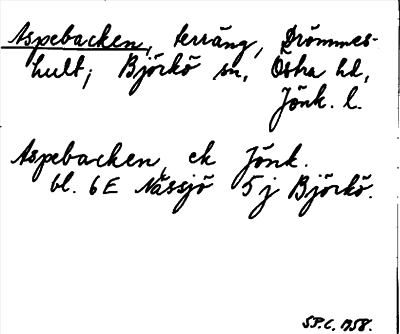 Aspebacken, terräng, Drömmes-
hult; Björkö sn, Östra hd,
Jönk. l.
Aspebacken, ek Jönk.
bl. 6E Nässjö 5j Björkö.
SP.C. 1958.